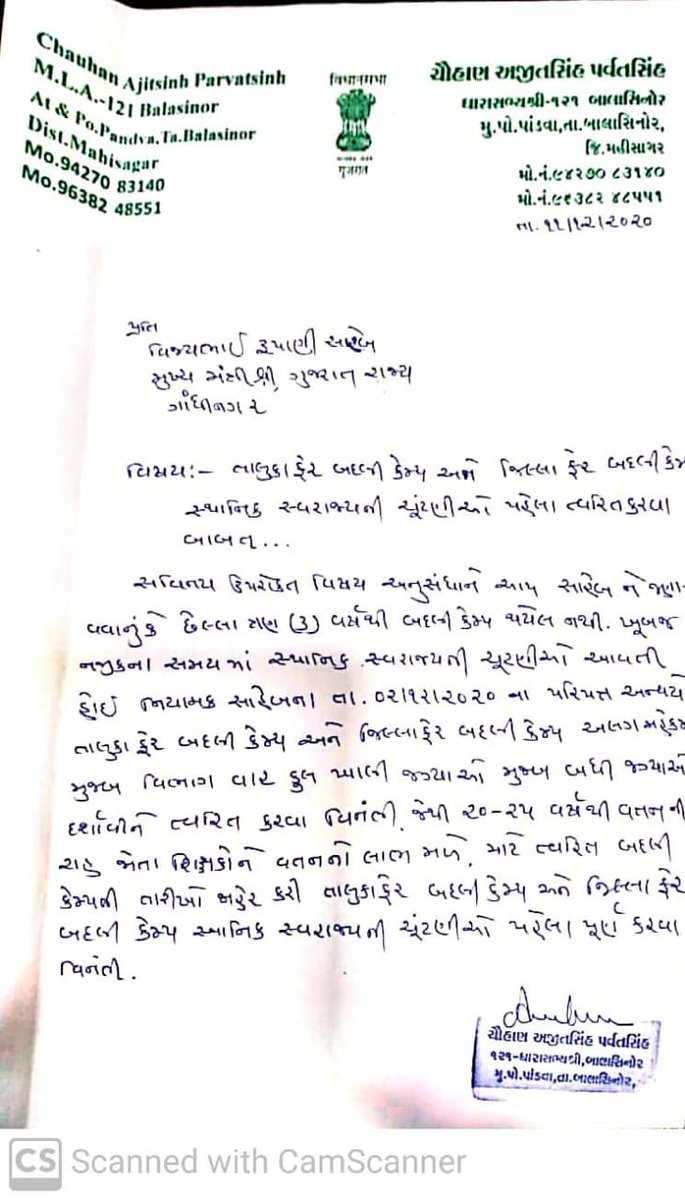 Chauhan Ajitsinh Parvatsinh
M.L.A.-121 Balasinor
At & Po.Pandva,Ta.Balasinor
Dist.Mahisagar
Mo.94270 83140
Mo.96382 48551
વિધાનસભા
ગુજરાત
ચૌહાણ અજીતસિંહ પર્વતસિંહ
ધારાસભ્યશ્રી-૧૨૧ બાલાસિનોર
મુ.પો.પાંડવા,તા.બાલાસિનોર,
જિ.મહીસાગર
મો.નં.૯૪૨૭૦ ૮૩૧૪૦
મો.નં.૯૬૩૮૨ ૪૮૫૫૧
તા. ૧૧/૧૨/૨૦૨૦
પ્રતિ
વિજયભાઈ રૂપાણી સાહેબ
મુખ્ય મંત્રીશ્રી, ગુજરાત રાજ્ય
ગાંધીનગર
વિષય:- તાલુકાફેર બદલી કેમ્પ અને જિલ્લા ફેર બદલી કેમ્
સ્થાનિક સ્વરાજ્યની ચૂંટણીઓ પહેલા ત્વરિત કરવા
બાબત...
સવિનય ઉપરોક્ત વિષય અનુસંધાને આપ સાહેબ ને જણા-
વવાનું કે છેલ્લા ત્રણ (૩) વર્ષથી બદલી કેમ્પ થયેલ નથી. ખૂબજ
નજીકના સમય માં સ્થાનિક સ્વરાજ્યની ચૂંટણીઓ આવતી
હોઈ નિયામક સાહેબના તા. ૦૨/૧૨/૨૦૨૦ ના પરિપત્ર અન્વયે
તાલુકા ફેર બદલી કેમ્પ અને જિલ્લાફેર બદલી કેમ્પ અલગ મહેકમ
મુજબ વિભાગ વાર કુલ ખાલી જગ્યાઓ મુજબ બધી જગ્યાઓ
દર્શાવીને ત્વરિત કરવા વિનંતી. જેથી ૨૦-૨૫ વર્ષથી વતન ની
રાહ જોતા શિક્ષકોને વતનનો લાભ મળે. માટે ત્વરિત બદલી
કેમ્પની તારીખો જાહેર કરી તાલુકાફેર બદલી કેમ્પ અને જિલ્લા ફેર
બદલી કેમ્પ સ્થાનિક સ્વરાજ્ય ની ચૂંટણીઓ પહેલા પૂર્ણ કરવા
વિનંતી.
ચૌહાણ અજીતસિંહ પર્વતસિંહ
૧૨૧-ધારાસભ્યશ્રી,બાલાસિનોર
મુ.પો.પાંડવા,તા.બાલાસિનોર,
CS Scanned with CamScanner